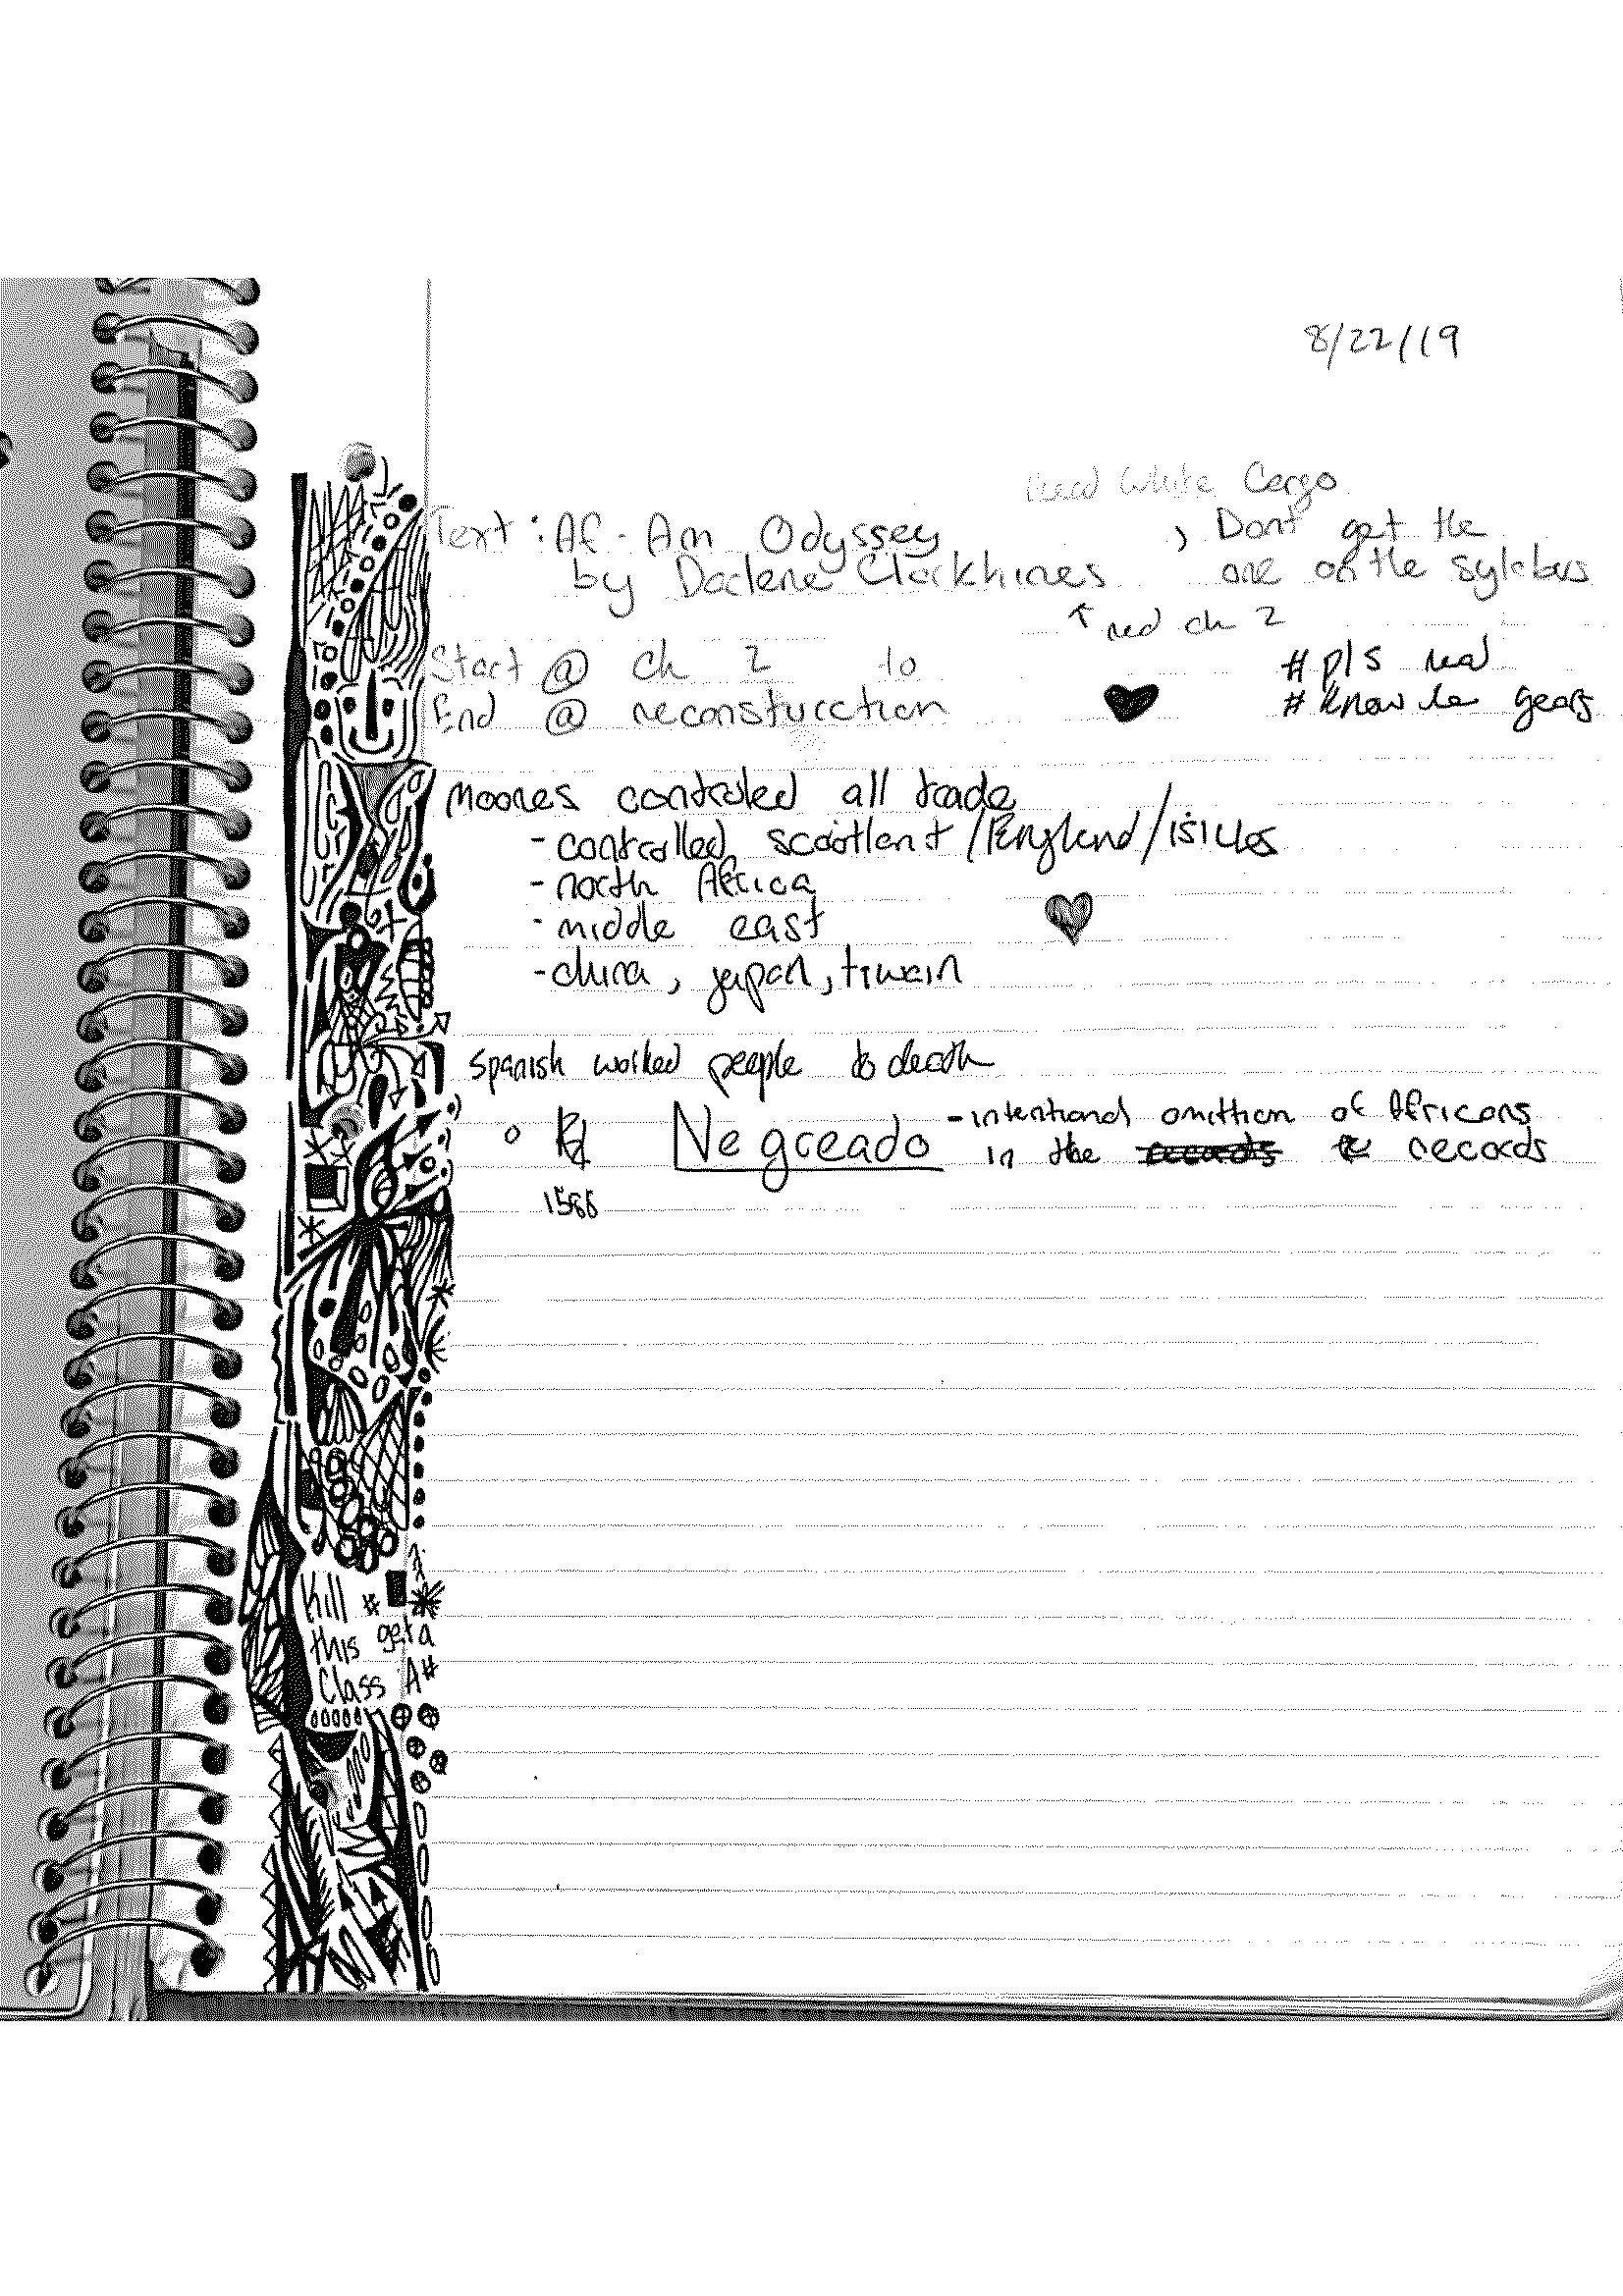 8/22/19
Read White Cargo
Text: Af-Am Odyssey , Dont get the
by Darlene Clarkhines one on the sylabus
↑ red ch 2
Start @ ch 2 to # pls read
End @ reconsturction # know le gears
Moores controled all trade
- controlled scootlant/England/isiles
- north Africa
- middle east
- china, japan, tiwain
Spanish worked people to death
Negreado - intentional omittion of Africans
in the records records
1588
Kill #
this get a
Class A#